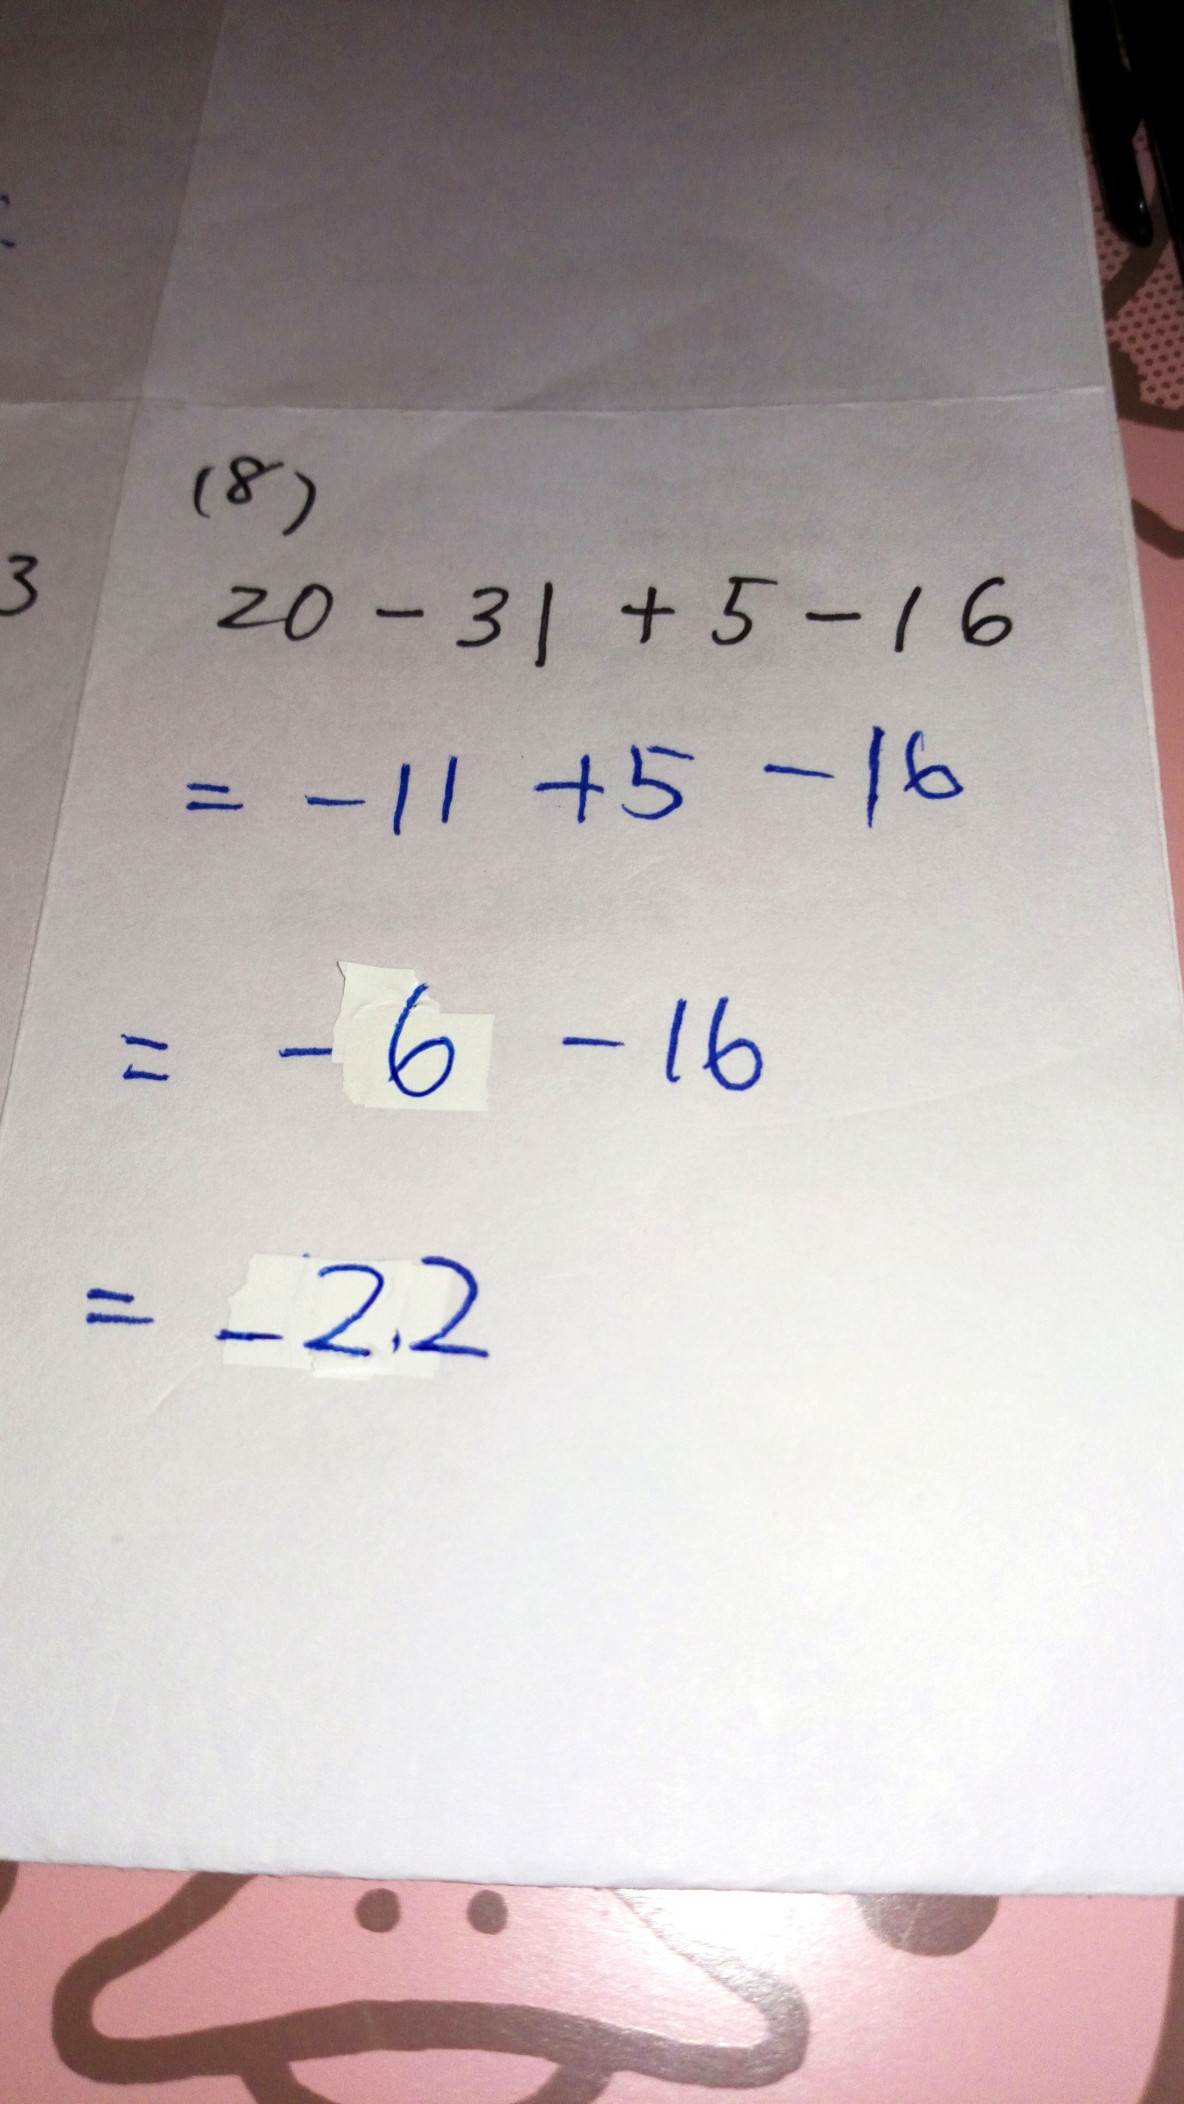 (8)
3
20 - 31 + 5 - 16
= - 11 + 5 - 16
= - 6 - 16
= - 2.2